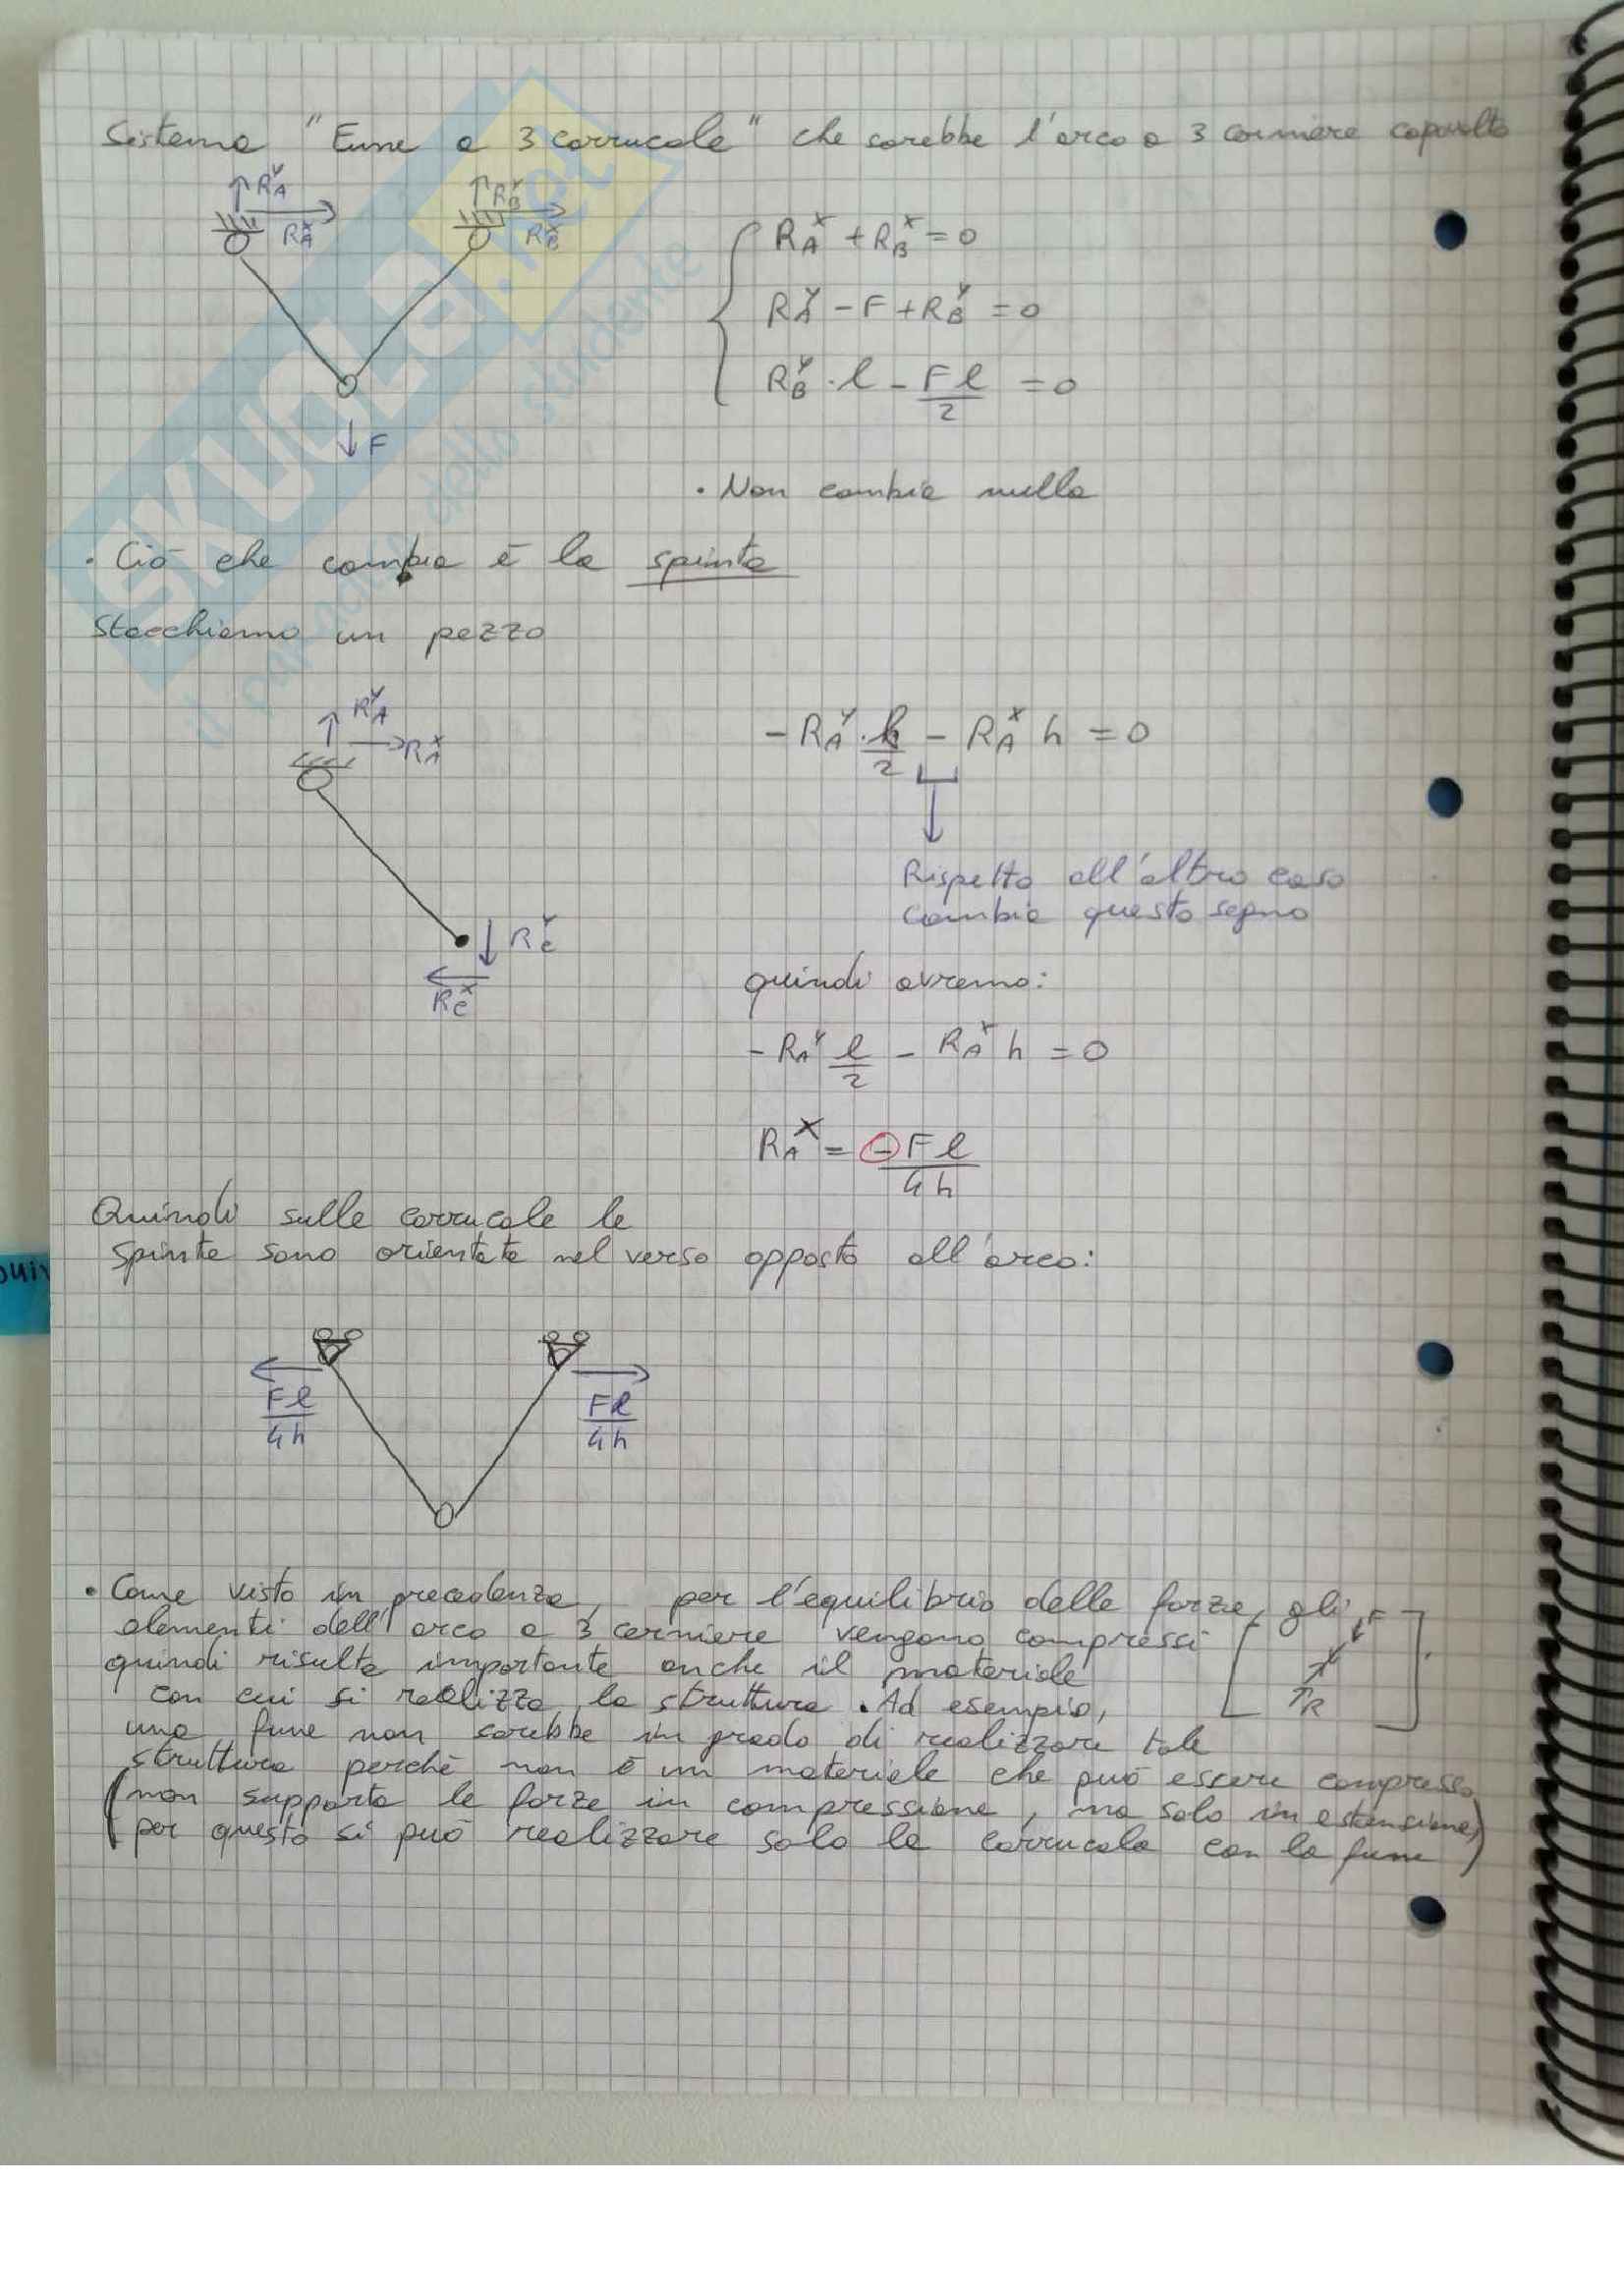 Sistema "Fune a 3 carrucole" che sarebbe l'arco a 3 cerniere capovolto
R_A^y R_B^y
R_A^x R_B^x
R_A^x + R_B^x = 0
R_A^y - F + R_B^y = 0
R_B^y · l - Fl/2 = 0
F
• Non cambia nulla
• Ciò che cambia è la spinta
Stacchiamo un pezzo
R_A^y
R_A^x
- R_A^y · l/2 - R_A^x h = 0
Rispetto all'altro caso
cambia questo segno
R_C^y
R_C^x
quindi avremo:
- R_A^y l/2 - R_A^x h = 0
R_A^x = - Fl/4h
Quindi sulle carrucole le
spinte sono orientate nel verso opposto all'arco:
Fl/4h Fl/4h
• Come visto in precedenza, per l'equilibrio delle forze, gli
elementi dell'arco a 3 cerniere vengono compressi
F
R
quindi risulta importante anche il materiale
con cui si realizza la struttura. Ad esempio,
una fune non sarebbe in grado di realizzare tale
struttura perchè non è un materiale che può essere compresso
(non supporta le forze in compressione, ma solo in estensione,
per questo si può realizzare solo la carrucola con la fune)
SKUOLA.net
il paradiso dello studente